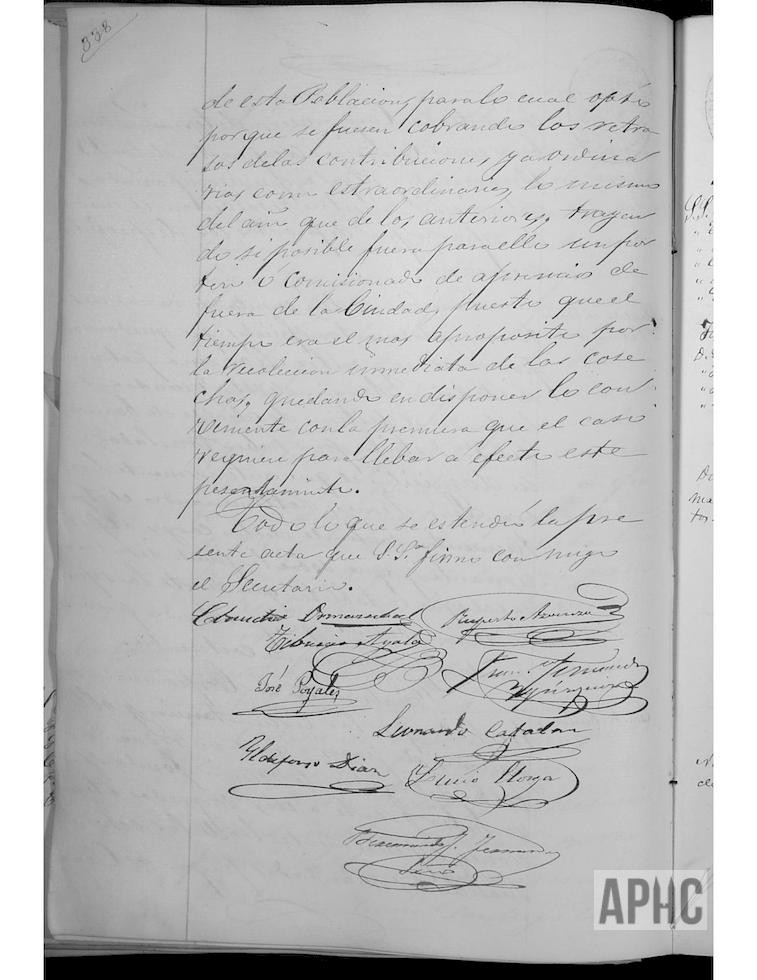 338
de esta Poblacion, para lo cual optó
porque se fuesen cobrando los retra
sos de las contribuciones ya ordina
rias como estraordinarias, lo mismo
del año que de los anteriores, trayen
do si posible fuera para ello un por
tero ó comisionado de apremio de
fuera de la Ciudad, puesto que el
tiempo era el mas apropósito por
la recoleccion inmediata de las cose
chas, quedando en disponer lo con
veniente con la premura que el caso
requiere para llebar a efecto este
pesentamiento.
Todo lo que se estendió la pre
sente acta que S.Sª firma con migo
el Secretario.
Claudio Ruperto
Tiburcio Ayala
Franº Fernandez
José Royales
Leonardo Catalan
Yldefonso Diaz Lucio
Fernandez
Srio
APHC